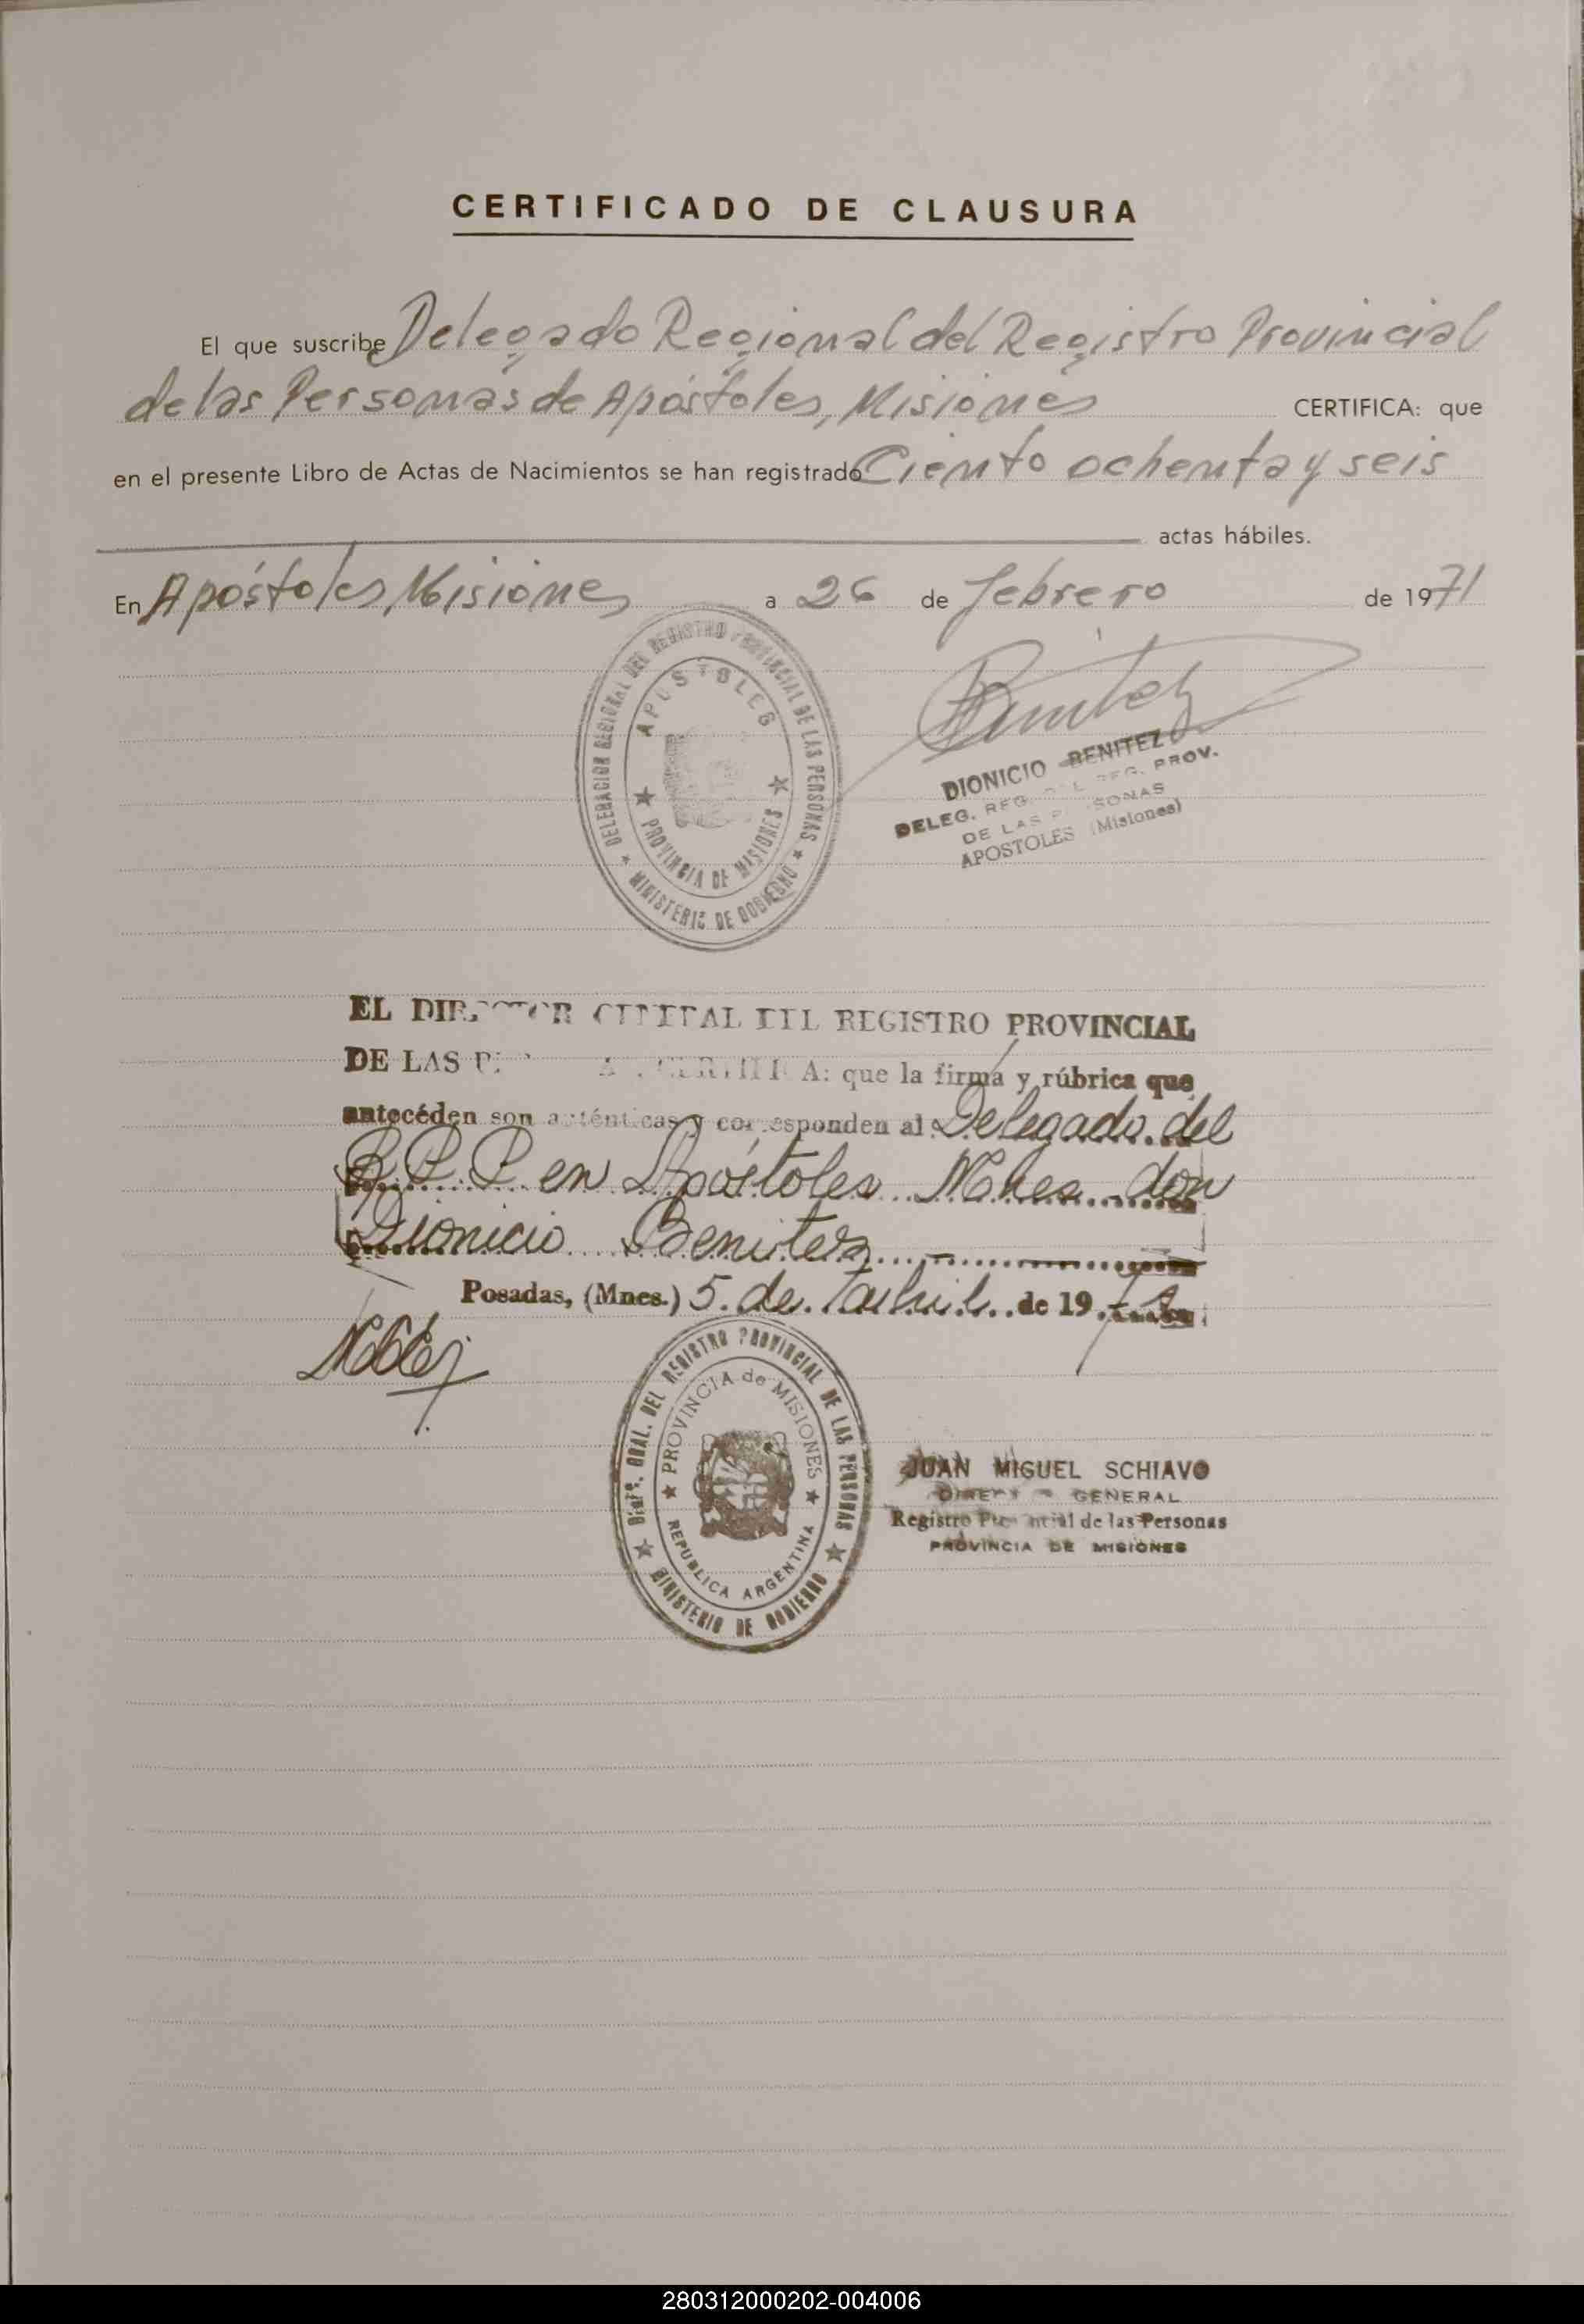 CERTIFICADO DE CLAUSURA
El que suscribe Delegado Regional del Registro Provincial
de las Personas de Apóstoles, Misiones CERTIFICA: que
en el presente Libro de Actas de Nacimientos se han registrado Ciento ochenta y seis
actas hábiles.
En Apóstoles, Misiones a 26 de febrero de 1971
DELEGACION REGIONAL DEL REGISTRO PROVINCIAL DE LAS PERSONAS
APOSTOLES
PROVINCIA DE MISIONES
MINISTERIO DE GOBIERNO
Benitez
DIONICIO BENITEZ
DELEG. REG. DEL REG. PROV.
DE LAS PERSONAS
APOSTOLES (Misiones)
EL DIRECTOR GENERAL DEL REGISTRO PROVINCIAL
DE LAS CERTIFICA: que la firma y rúbrica que
antecéden son auténticas y corresponden al Delegado del
R.P.P. en Apóstoles Mnes. don
Dionicio Benitez
Posadas, (Mnes.) 5 de abril de 1971
DIREC. GRAL. DEL REGISTRO PROVINCIAL DE LAS PERSONAS
PROVINCIA de MISIONES
REPUBLICA ARGENTINA
MINISTERIO DE GOBIERNO
JUAN MIGUEL SCHIAVO
DIRECTOR GENERAL
Registro Provincial de las Personas
PROVINCIA DE MISIONES
280312000202-004006